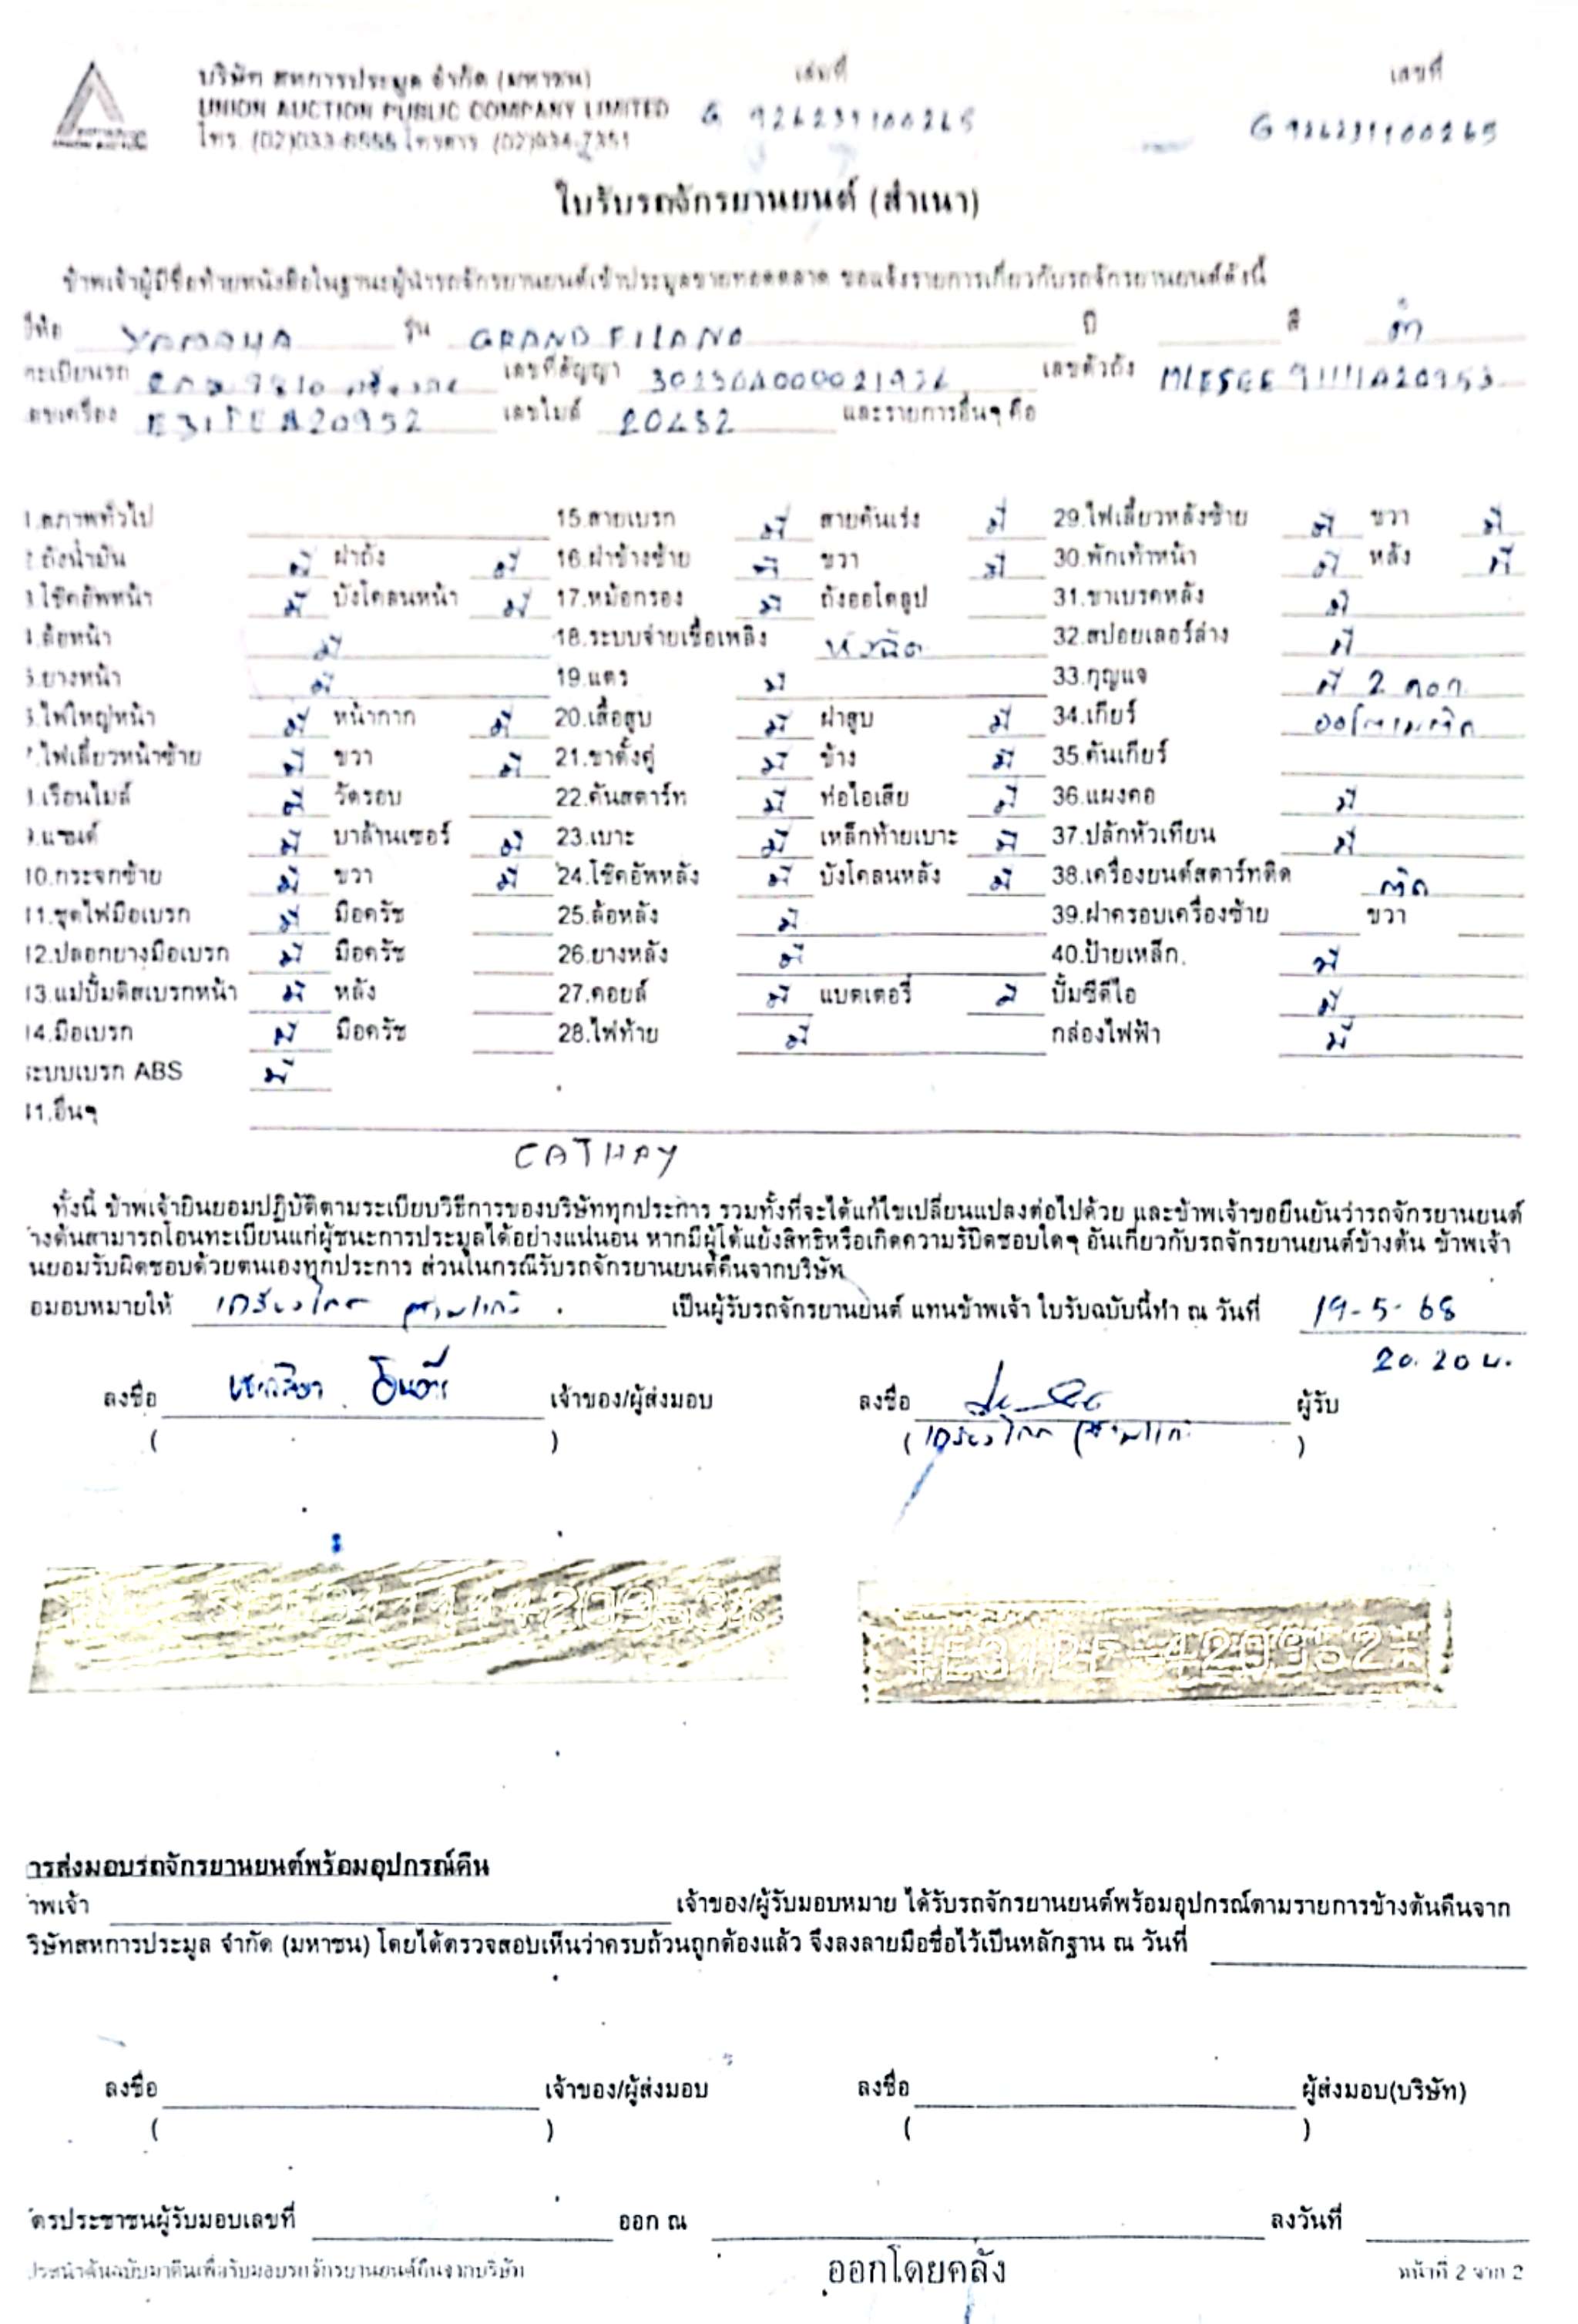 บริษัท สหการประมูล จำกัด (มหาชน) เล่มที่ เลขที่
UNION AUCTION PUBLIC COMPANY LIMITED G 926231100265 G 926231100265
โทร. (02)033-6555 โทรสาร (02)034-7351
ใบรับรถจักรยานยนต์ (สำเนา)
ข้าพเจ้าผู้มีชื่อท้ายหนังสือในฐานะผู้นำรถจักรยานยนต์เข้าประมูลขายทอดตลาด ขอแจ้งรายการเกี่ยวกับรถจักรยานยนต์ดังนี้
ยี่ห้อ YAMAHA รุ่น GRAND FILANO ปี สี ดำ
ทะเบียนรถ เลขที่สัญญา เลขตัวถัง
เลขเครื่อง เลขไมล์ 20482 และรายการอื่นๆ คือ
1.สภาพทั่วไป 15.สายเบรก มี สายคันเร่ง มี 29.ไฟเลี้ยวหลังซ้าย มี ขวา มี
2.ถังน้ำมัน มี ฝาถัง มี 16.ฝาข้างซ้าย มี ขวา มี 30.พักเท้าหน้า มี หลัง มี
3.โช๊คอัพหน้า มี บังโคลนหน้า มี 17.หม้อกรอง มี ถังออโตลูป 31.ขาเบรคหลัง มี
4.ล้อหน้า มี 18.ระบบจ่ายเชื้อเพลิง หัวฉีด 32.สปอยเลอร์ล่าง มี
5.ยางหน้า มี 19.แตร มี 33.กุญแจ มี 2 ดอก
6.ไฟใหญ่หน้า มี หน้ากาก มี 20.เสื้อสูบ มี ฝาสูบ มี 34.เกียร์ ออโตเมติก
7.ไฟเลี้ยวหน้าซ้าย มี ขวา มี 21.ขาตั้งคู่ มี ข้าง มี 35.คันเกียร์
8.เรือนไมล์ มี วัดรอบ 22.คันสตาร์ท มี ท่อไอเสีย มี 36.แผงคอ มี
9.แฮนด์ มี บาล้านเซอร์ มี 23.เบาะ มี เหล็กท้ายเบาะ มี 37.ปลั๊กหัวเทียน มี
10.กระจกซ้าย มี ขวา มี 24.โช๊คอัพหลัง มี บังโคลนหลัง มี 38.เครื่องยนต์สตาร์ทติด ติด
11.ชุดไฟมือเบรก มี มือครัช 25.ล้อหลัง มี 39.ฝาครอบเครื่องซ้าย ขวา
12.ปลอกยางมือเบรก มี มือครัช 26.ยางหลัง มี 40.ป้ายเหล็ก. มี
13.แม่ปั๊มดิสเบรกหน้า มี หลัง 27.คอยล์ มี แบตเตอรี่ มี ปั๊มซีดีไอ มี
14.มือเบรก มี มือครัช 28.ไฟท้าย มี กล่องไฟฟ้า มี
ระบบเบรก ABS มี
41.อื่นๆ
CATHAY
ทั้งนี้ ข้าพเจ้ายินยอมปฏิบัติตามระเบียบวิธีการของบริษัททุกประการ รวมทั้งที่จะได้แก้ไขเปลี่ยนแปลงต่อไปด้วย และข้าพเจ้าขอยืนยันว่ารถจักรยานยนต์
ข้างต้นสามารถโอนทะเบียนแก่ผู้ชนะการประมูลได้อย่างแน่นอน หากมีผู้โต้แย้งสิทธิหรือเกิดความรับผิดชอบใดๆ อันเกี่ยวกับรถจักรยานยนต์ข้างต้น ข้าพเจ้า
ยินยอมรับผิดชอบด้วยตนเองทุกประการ ส่วนในกรณีรับรถจักรยานยนต์คืนจากบริษัท
ขอมอบหมายให้ เป็นผู้รับรถจักรยานยนต์ แทนข้าพเจ้า ใบรับฉบับนี้ทำ ณ วันที่ 19-5-68
20.20 น.
ลงชื่อ เจ้าของ/ผู้ส่งมอบ ลงชื่อ ผู้รับ
( ) ( )
420953* *E31PE-420952*
การส่งมอบรถจักรยานยนต์พร้อมอุปกรณ์คืน
ข้าพเจ้า เจ้าของ/ผู้รับมอบหมาย ได้รับรถจักรยานยนต์พร้อมอุปกรณ์ตามรายการข้างต้นคืนจาก
บริษัทสหการประมูล จำกัด (มหาชน) โดยได้ตรวจสอบเห็นว่าครบถ้วนถูกต้องแล้ว จึงลงลายมือชื่อไว้เป็นหลักฐาน ณ วันที่
ลงชื่อ เจ้าของ/ผู้ส่งมอบ ลงชื่อ ผู้ส่งมอบ(บริษัท)
( ) ( )
บัตรประชาชนผู้รับมอบเลขที่ ออก ณ ลงวันที่
โปรดนำต้นฉบับมาคืนเพื่อรับมอบรถจักรยานยนต์คืนจากบริษัท ออกโดยคลัง หน้าที่ 2 จาก 2